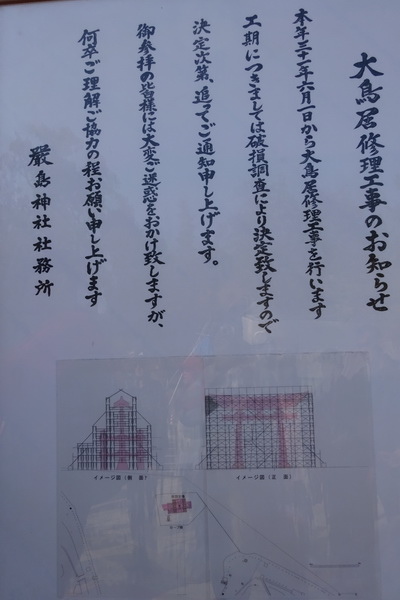 大鳥居修理工事のお知らせ
本年三十一年六月一日から大鳥居修理工事を行います
工期につきましては破損調査により決定致しますので
決定次第、追ってご通知申し上げます。
御参拝の皆様には大変ご迷惑をおかけ致しますが、
何卒ご理解ご協力の程お願い申し上げます
厳島神社社務所
イメージ図（側　面）
イメージ図（正　面）